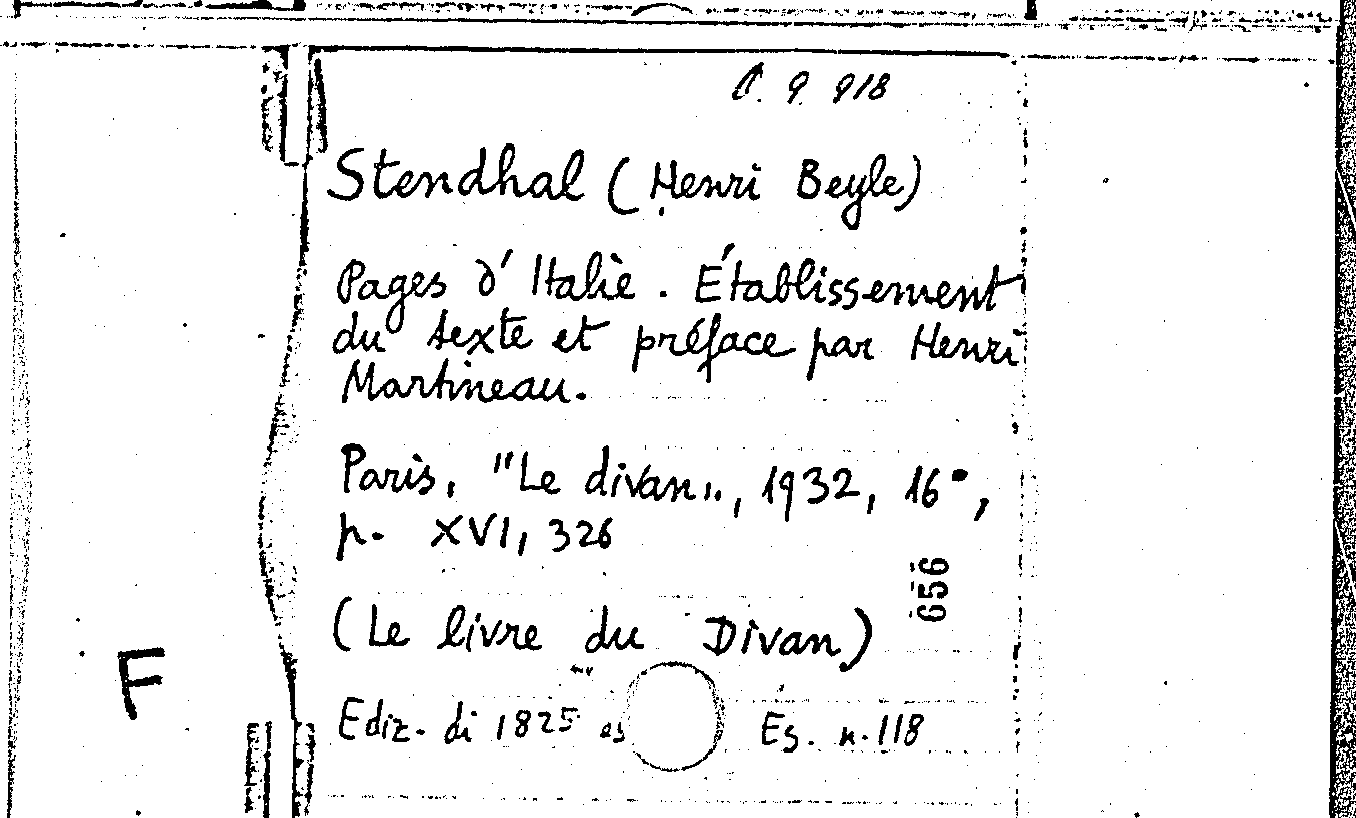 9 918
Stendhal (Henri Beyle)
Pages d'Italie. Établissement
du texte et préface par Henri
Martineau.
Paris, "Le divan", 1932, 16°,
p. XVI, 326
656
(Le livre du Divan)
F
Ediz. di 1825 es Es. n. 118